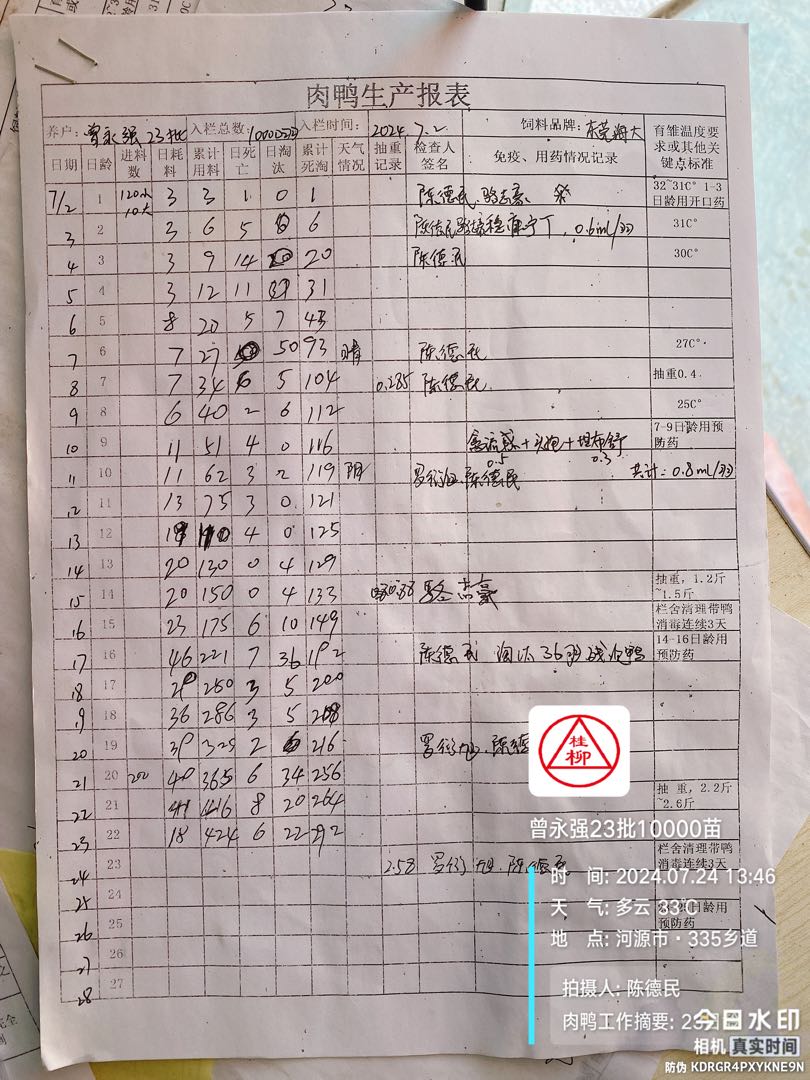 肉鸭生产报表
养户: 曾永强 23批 入栏总数: 10000羽 入栏时间: 2024.7.2 饲料品牌: 东莞海大 育雏温度要求或其关键点标准
日期 日龄 进料数 日耗料 累计用料 日死亡 日淘汰 累计死淘 天气情况 抽重记录 检查人签名 免疫、用药情况记录
7/2 1 120小 10大 3 3 1 0 1 陈德民 32~31C° 1-3日龄用开口药
3 2 3 6 5 6 陈德民 0.6ml/羽 31C°
4 3 3 9 14 20 陈德民 30C°
5 4 3 12 11 31
6 5 8 20 5 7 43
7 6 7 27 50 93 晴 陈德民 27C°
8 7 7 34 6 5 104 0.285 陈德民 抽重0.4
9 8 6 40 2 6 112 25C°
10 9 11 51 4 0 116 7-9日龄用预防药
11 10 11 62 3 2 119 阴 陈德民 0.5 0.3 共计: 0.8ml/羽
12 11 13 75 3 0 121
13 12 4 0 125
14 13 20 130 0 4 129
15 14 20 150 0 4 133 抽重，1.2斤~1.5斤
16 15 23 175 6 10 149 栏舍清理带鸭消毒连续3天
17 16 46 221 7 36 192 陈德民 淘汰36羽 14-16日龄用预防药
18 17 29 250 3 5 200
19 18 36 286 3 5 208
20 19 39 325 2 6 216
21 20 200 40 365 6 34 256
22 21 416 8 20 264 抽 重，2.2斤~2.6斤
23 22 18 424 6 22 292
24 23 2.58 陈德民 栏舍清理带鸭消毒连续3天
25 24
26 25 日龄用预防药
27 26
28 27
桂柳
曾永强23批10000苗
时 间: 2024.07.24 13:46
天 气: 多云 33℃
地 点: 河源市·335乡道
拍摄人: 陈德民
肉鸭工作摘要: 23日
今日水印
相机 真实时间
防伪 KDRGR4PXYKNE9N